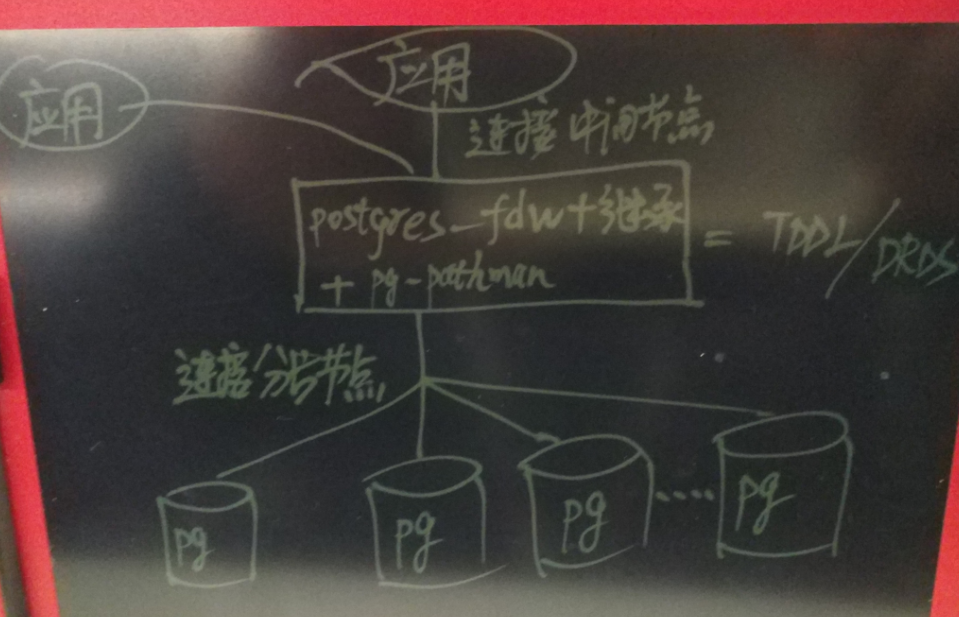 应用
应用
连接中间节点
postgres_fdw+继承
+ pg-pathman
= TDDL/DRDS
连接分片节点
pg
pg
pg
....
pg